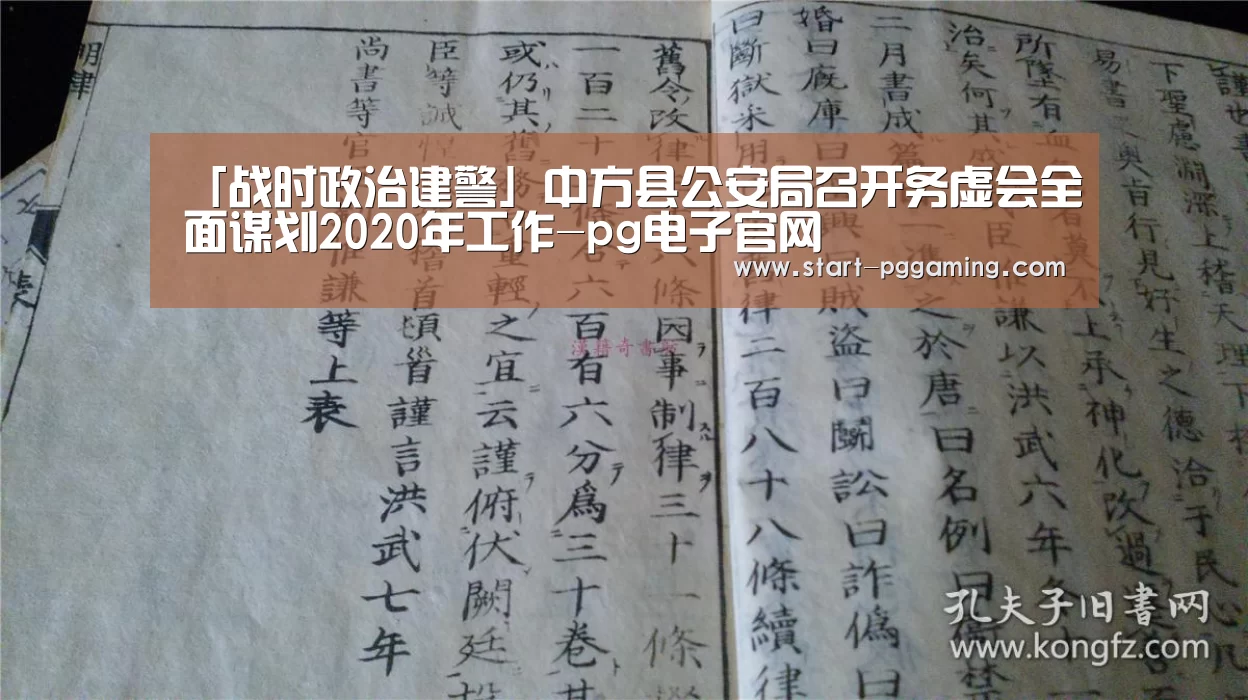 「战时政治建警」中方县公安局召开务虚会全
面谋划2020年工作-pg电子官网
www.start-pggaming.com
謹也書
下聖慮淵深上稽天理下
易書 輿肓行見好生之德洽于民心凡
所墜有血 者莫不上承神化改過
治矣何其 臣惟謙以洪武六年冬十
二月書成篇 一準之於唐曰名例曰衛禁
婚曰廐庫曰 興曰賊盜曰鬭訟曰詐僞曰
曰斷獄采用舊律二百八十八條續律
舊令改律 六條因事制律三十一條
一百二十 條合六百有六分爲三十卷其
或仍其舊務 重輕之宜云謹俯伏闕廷投
臣等誠惶 稽首頓首謹言洪武七年
尚書等官 惟謙等上表
明律
漢籍奇書坊
孔夫子旧書网
www.kongfz.com